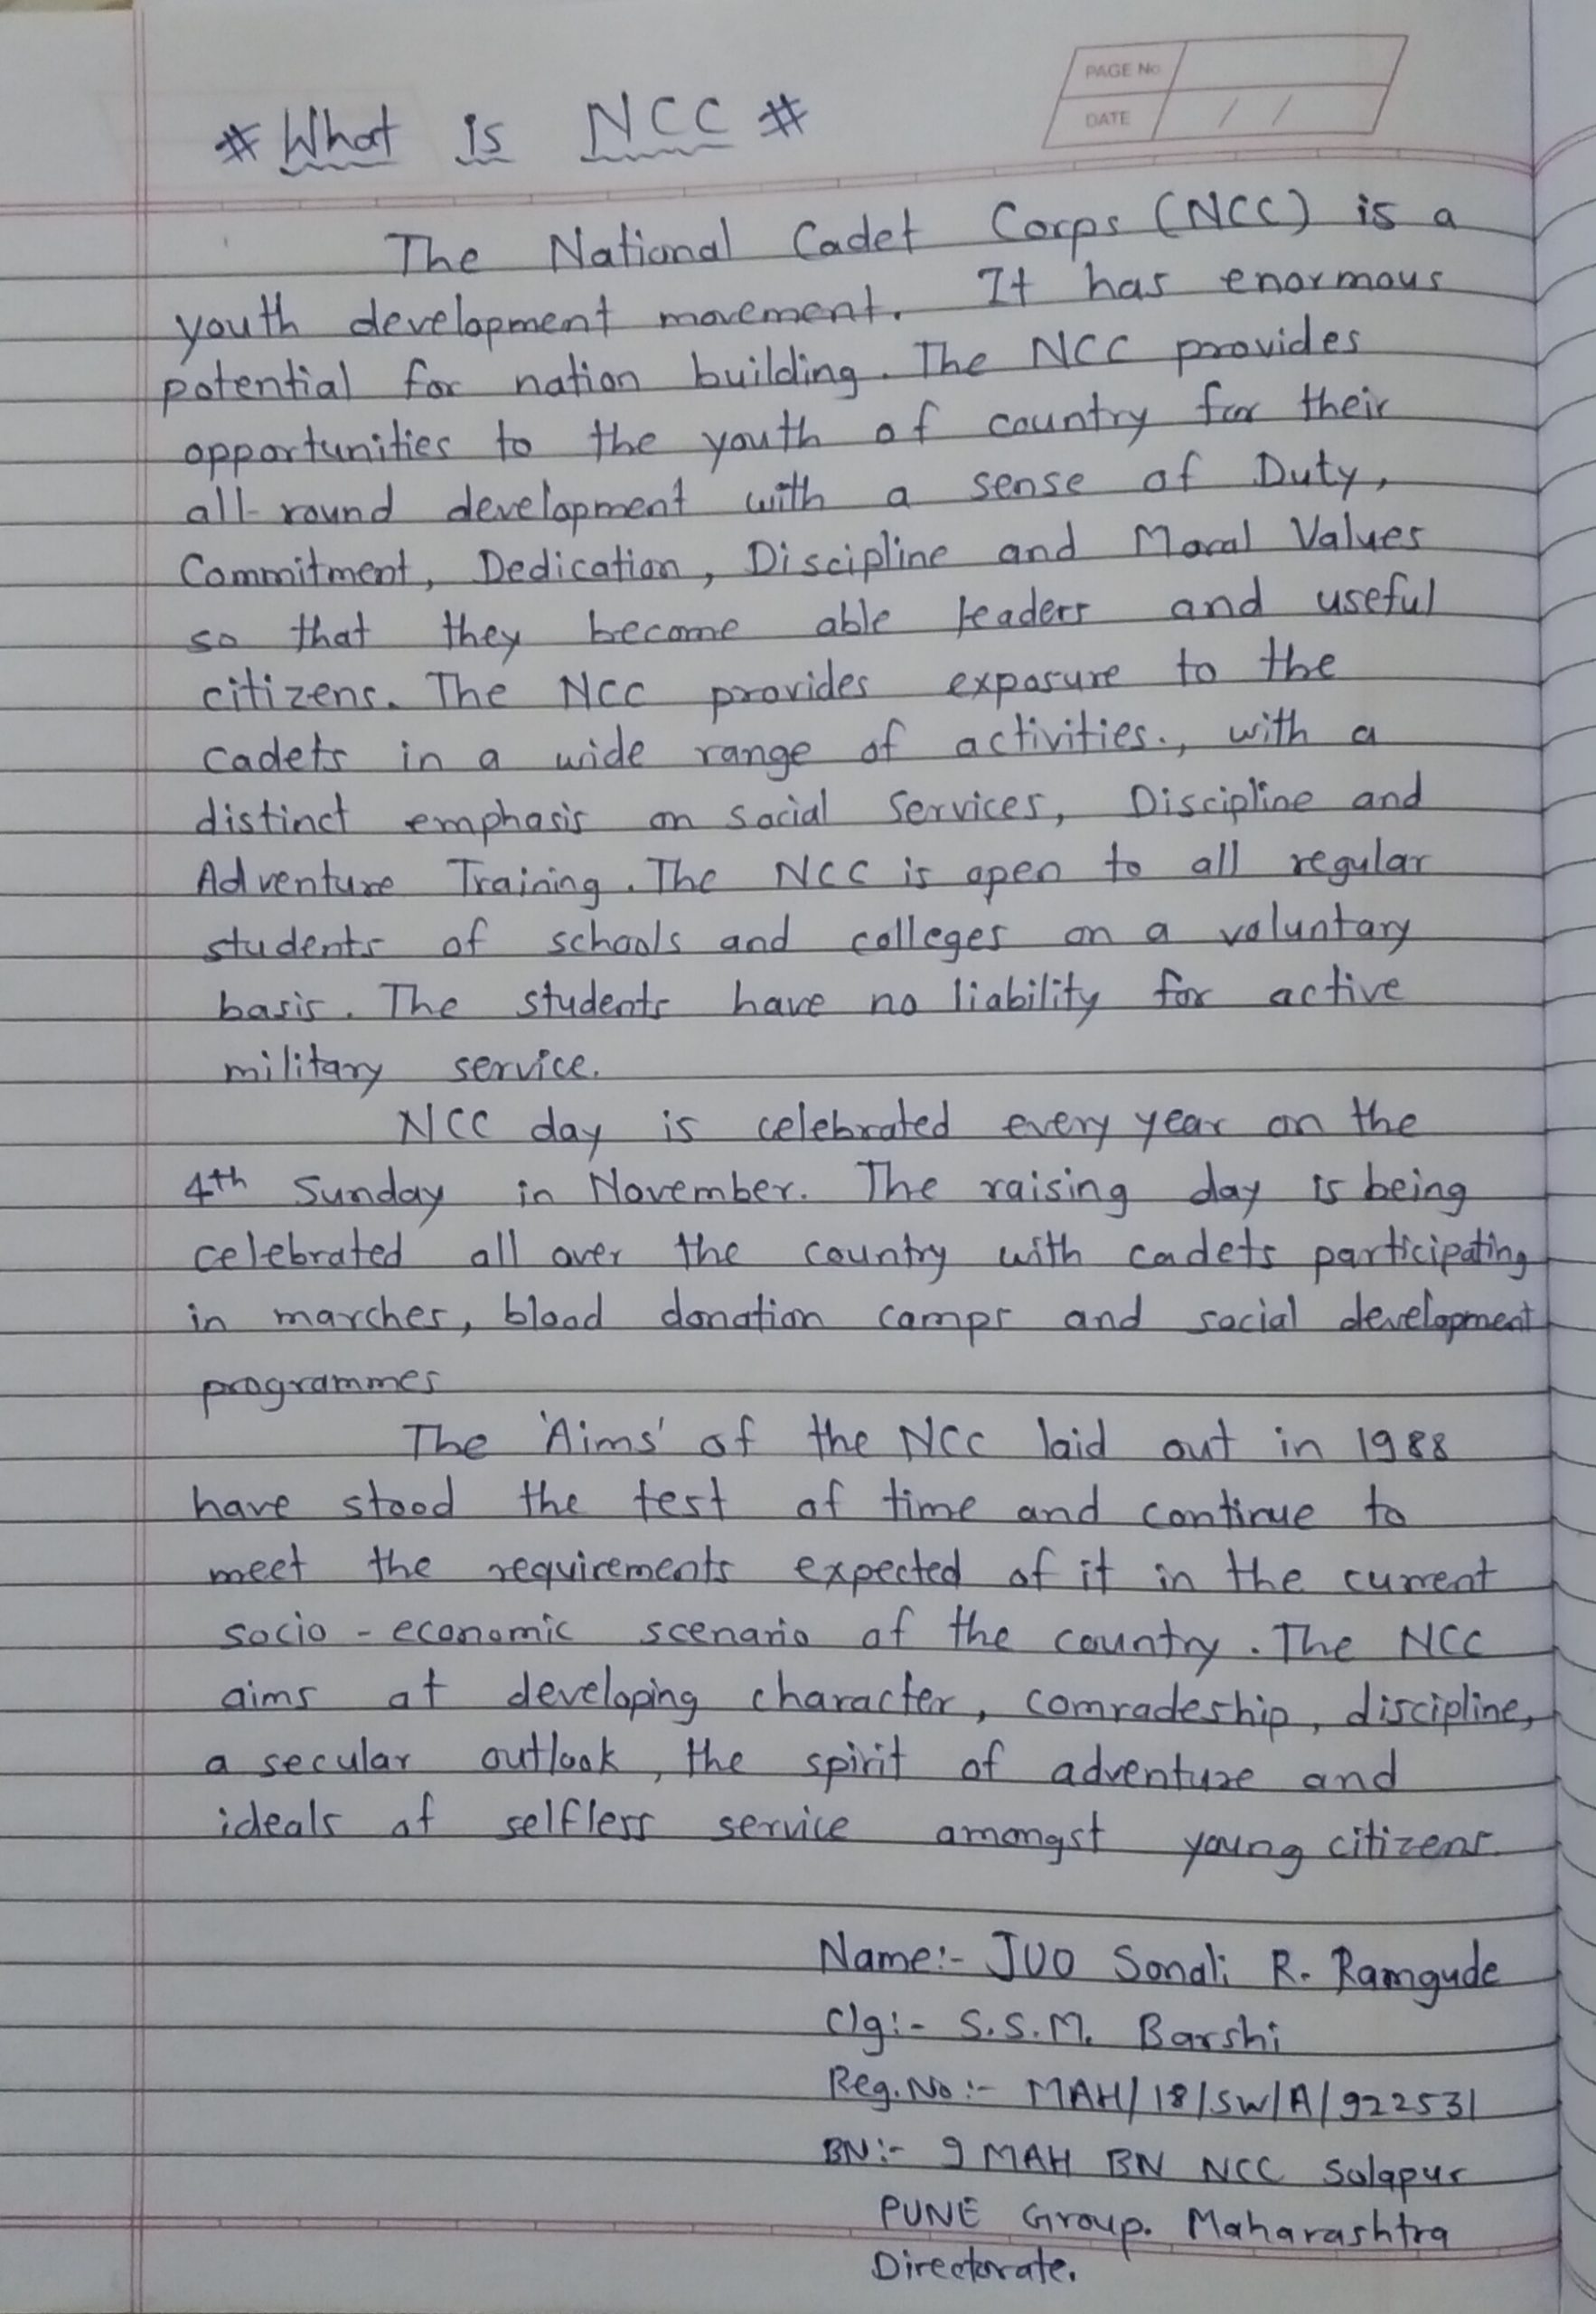 PAGE No
DATE / /
# What is NCC #
The National Cadet Corps (NCC) is a
youth development movement. It has enormous
potential for nation building. The NCC provides
opportunities to the youth of country for their
all-round development with a sense of Duty,
Commitment, Dedication, Discipline and Moral Values
so that they become able leaders and useful
citizens. The NCC provides exposure to the
cadets in a wide range of activities., with a
distinct emphasis on social Services, Discipline and
Adventure Training. The NCC is open to all regular
students of schools and colleges on a voluntary
basis. The students have no liability for active
military service.
NCC day is celebrated every year on the
4th Sunday in November. The raising day is being
celebrated all over the country with cadets participating
in marches, blood donation camps and social development
programmes
The 'Aims' of the NCC laid out in 1988
have stood the test of time and continue to
meet the requirements expected of it in the current
socio-economic scenario of the country. The NCC
aims at developing character, comradeship, discipline,
a secular outlook, the spirit of adventure and
ideals of selfless service amongst young citizens.
Name:- JUO Sonali R. Ramgude
Clg:- S.S.M. Barshi
Reg.No:- MAH/18/SW/A/922531
BN:- 9 MAH BN NCC Solapur
PUNE Group. Maharashtra
Directorate.